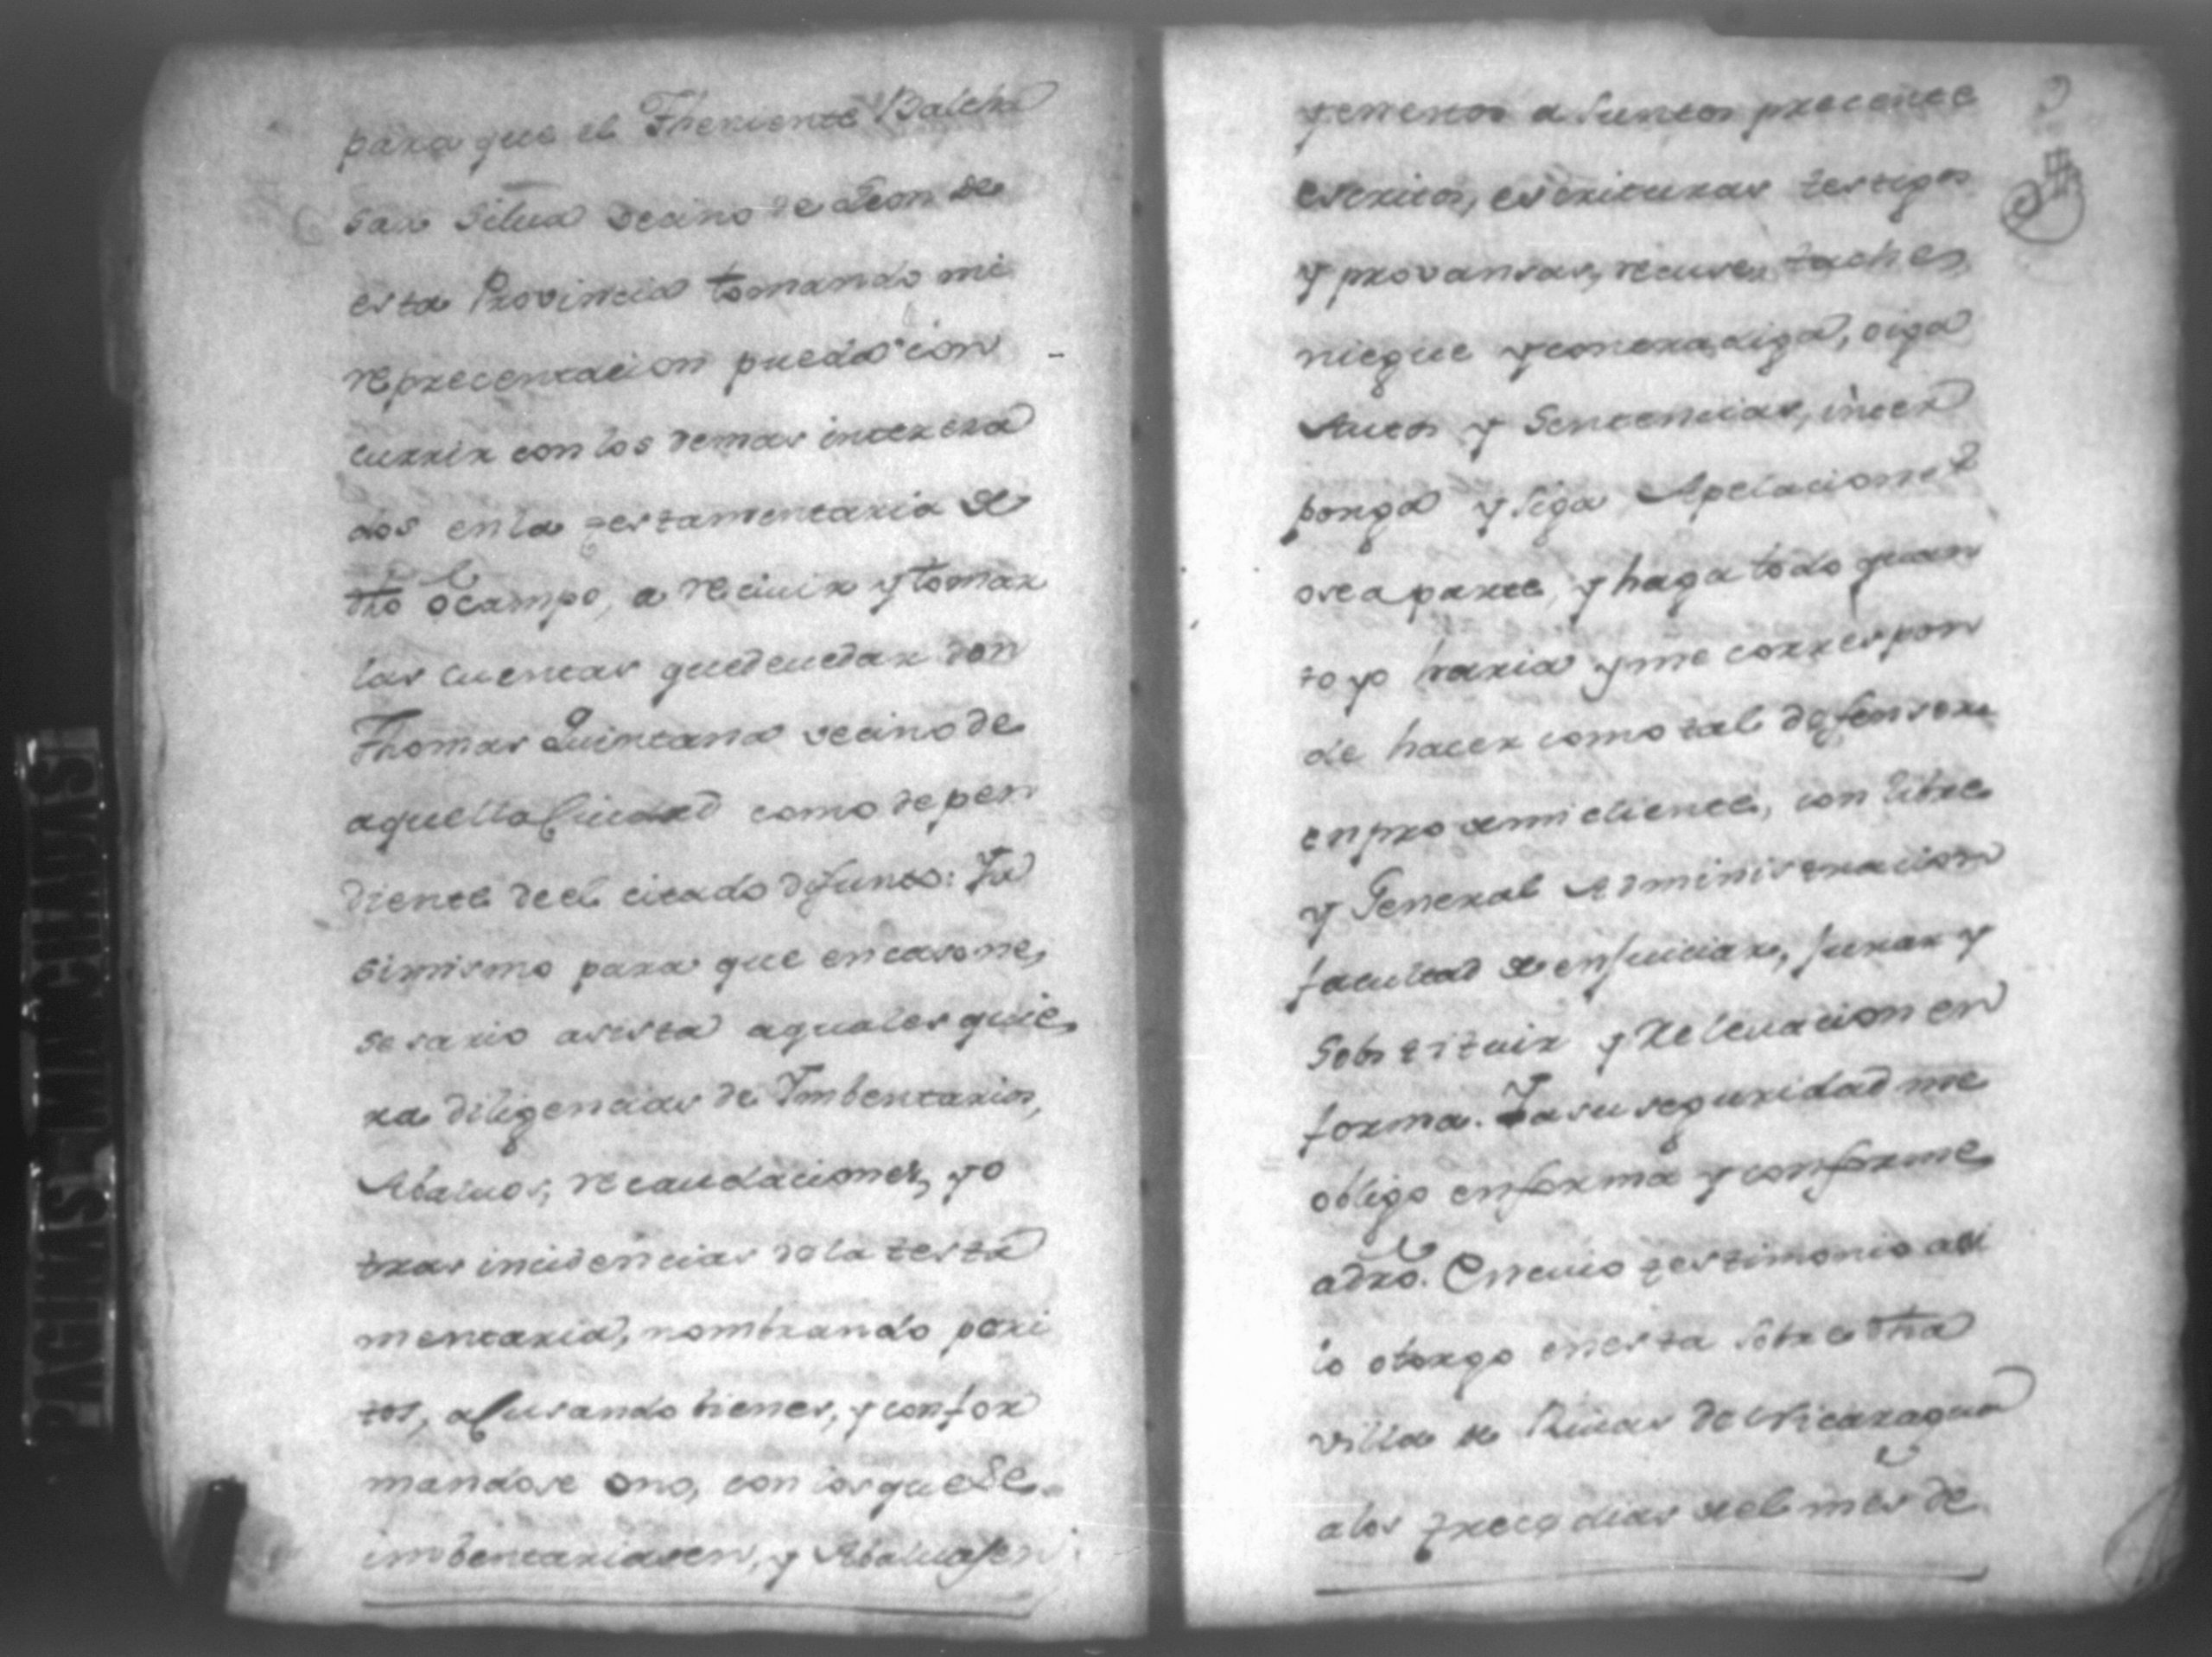 para que el Theniente Balth
sar Silua vecino de Leon de
esta Provincia tomando mi
reprecentacion pueda con
currir con los demas interesa
dos en la testamentaria de
dho Ocampo, a reciuir y tomar
las cuentas que deue dar don
Thomas Quintana vecino de
aquella Ciudad como depen
diente de el citado difunto: Ya
simismo para que en caso ne,
sesario asista a quales quie,
ra diligencias de Imbentarios,
Abaluos, recaudaciones, y o
tras incidencias de la testa
mentaria, nombrando peri
tos, acusando bienes, y confor
mandose o no, con los que se
imbentariasen, y Abaluasen
y en estos asuntos precente
escritos, escrituras testigos
y provansas, recuse, taches,
niegue y contradiga, oiga
Autos y Sentencias, inter
ponga y siga Apelaciones
o se aparte, y haga todo quan
to yo haria y me correspon
de hacer como tal defensor
en pro de mi cliente, con libre
y General Administracion
facultad de enjuiciar, jurar y
Sobstituir y Releuacion en
forma. Ya su seguridad me
obligo en forma y conforme
a dro. En cuio testimonio asi
lo otorgo en esta sobre dha
villa de Riuas de Nicaragua
a los trece dias de el mes de
PAGINAS MANCHADAS